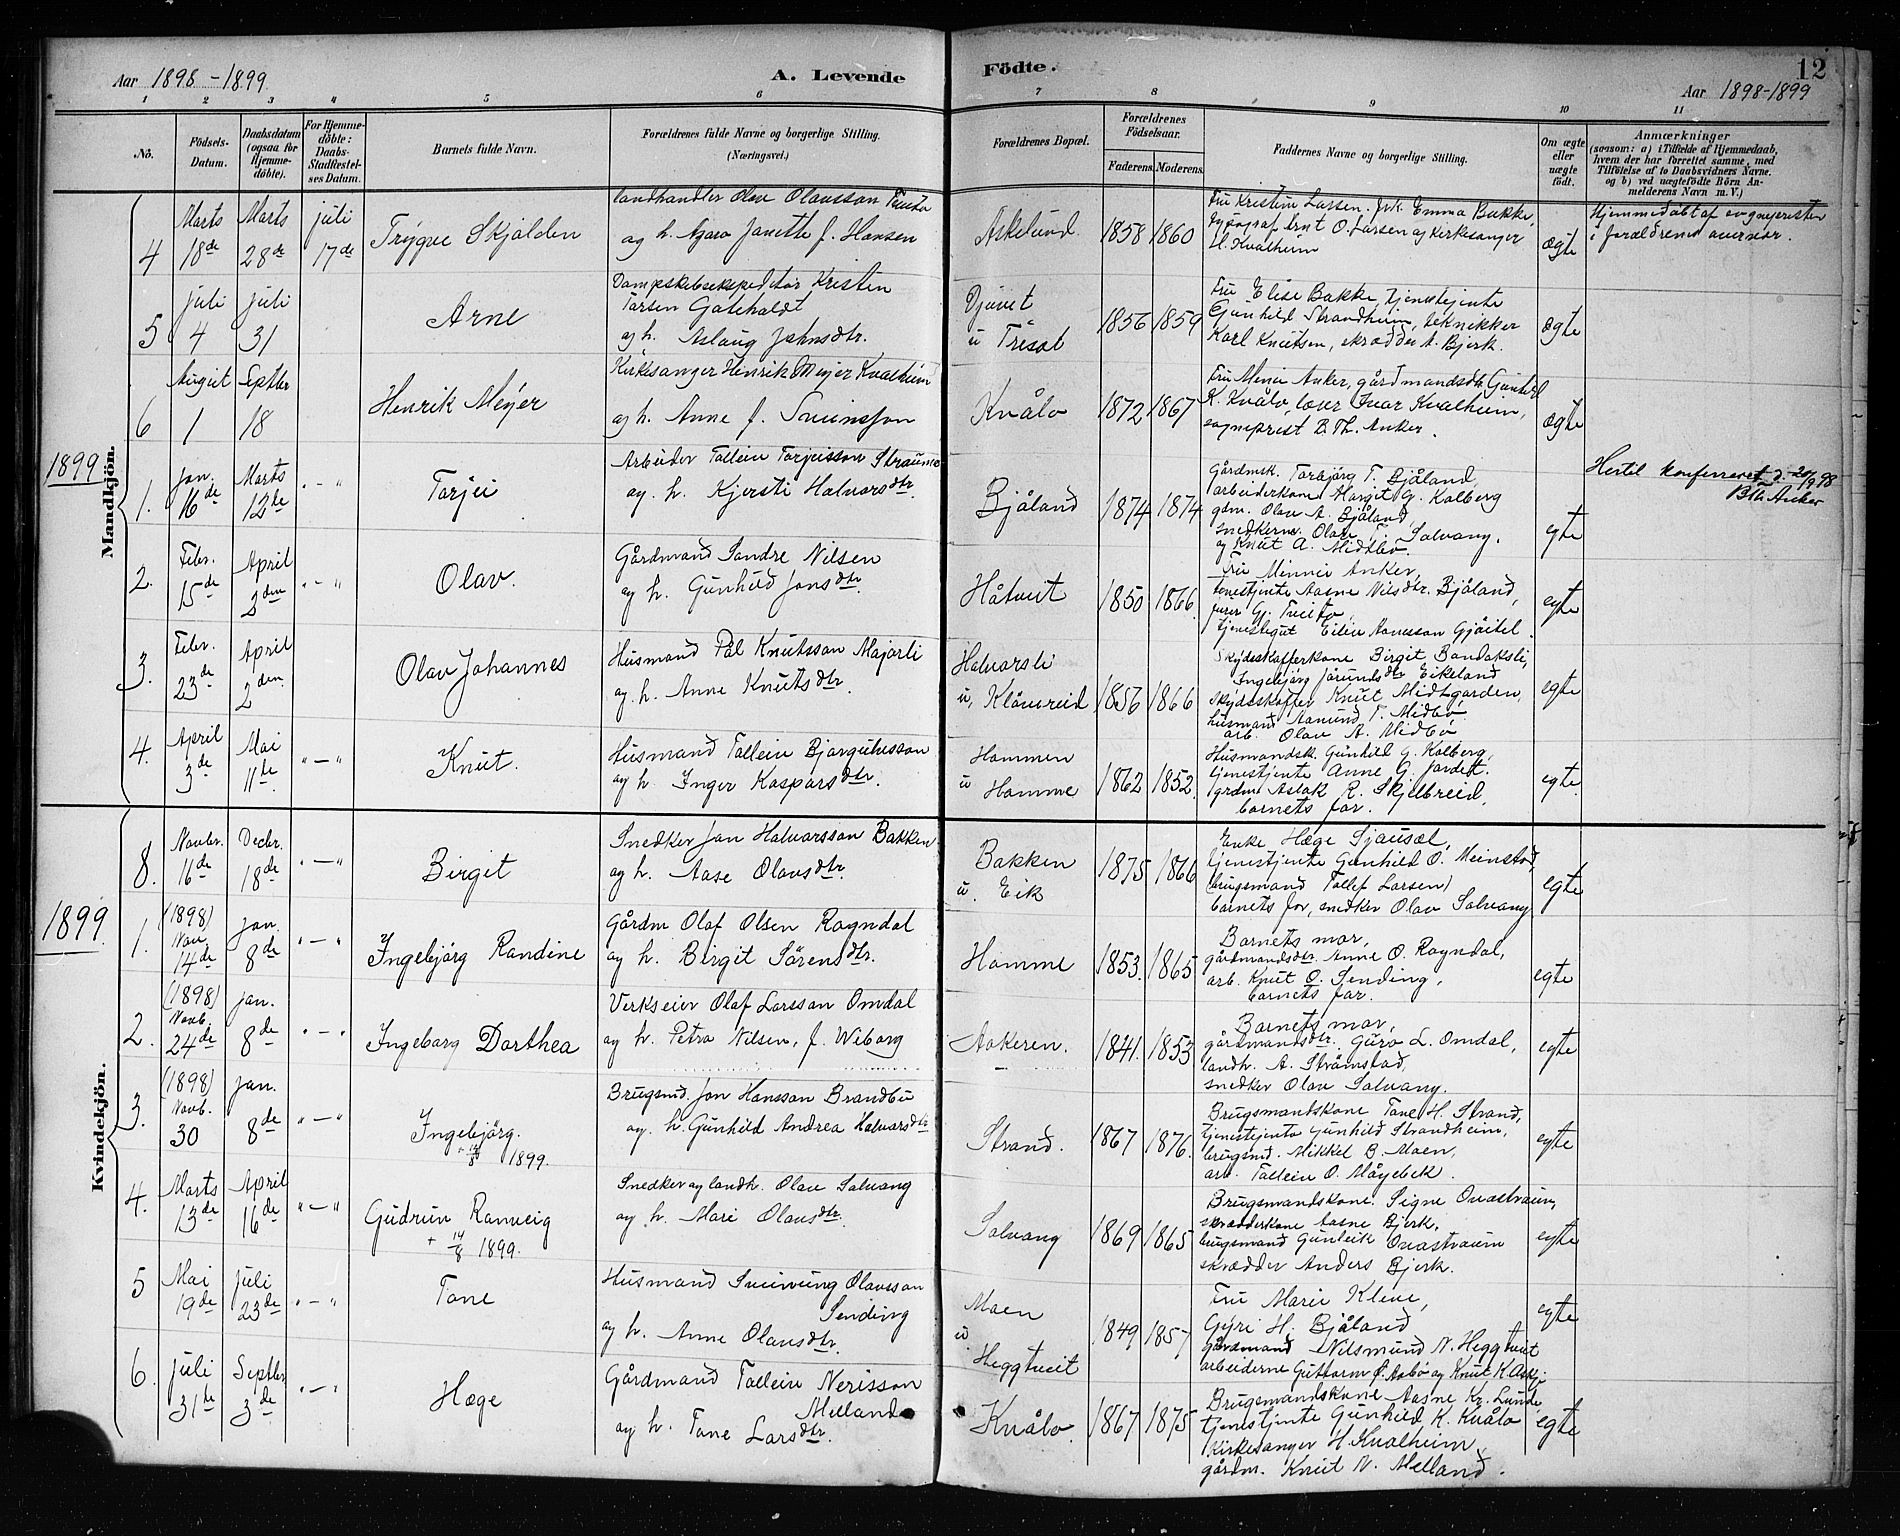 Aar 1898 - 1899.
A. Levende
Födte.
12
Aar 1898-1899
1 2 3 4 5 6 7 8 9 10 11
No.
Födsels-
Datum.
Daabsdatum
(ogsaa for
Hjemme-
döbte).
For Hjemme-
döbte:
Daabs-
Stadfestel-
ses Datum.
Barnets fulde Navn.
Forældrenes fulde Navne og borgerlige Stilling.
(Næringsvei.)
Forældrenes Bopæl.
Forældrenes
Födselsaar.
Faderens. Moderens.
Faddernes Navne og borgerlige Stilling.
Om ægte
eller
uægte
födt.
Anmærkninger
(saasom: a) i Tilfælde af Hjemmedaab,
hvem der har forrettet samme, med
Tilföielse af to Daabsvidners Navne.
og b) ved uægtefödte Börn An-
melderens Navn m. V.)
Mandkjön.
4 Marts 18de Marts 28de juli 17de
Trygve Skjalden
landhandler Olav Olavsson
og h. Janette f. Hansen
Askelund. 1858 1860
Fru Kristine Larsen, frk. Emma Bakke,
O. Larsen og kirkesanger
H. Kvalheim
ægte
Hjemmedøbt af sognepresten
i forældrenes nærvær.
5 juli 4 juli 31
Arne
Dampskibsekspeditør Kristen
Tarjen Gotehaldt
og h. Aslaug Johnsdtr.
Djuvet
u Triset 1856 1859
Fru Elise Bakke, tjenestejente
Gunhild Strandheim, tekniker
Karl Knutsen, skrædder A. Bjerk.
ægte
6 August 1 Septbr 18
Henrik Meyer
Kirkesanger Henrik Meyer Kvalheim
og h. Anne f. Sveinsson
Kvålo 1872 1867
Fru Menie Anker, gårdmandsdtr. Gunhild
K. Kvålo, lærer Ivar Kvalheim,
sogneprest B. Th. Anker.
ægte
1899
1. Jan. 16de Marts 12te " - "
Tarjei
Arbeider Tallein Tarjeisson Straume
og h. Kjersti Halvorsdtr.
Bjåland 1874 1874
Gårdmsk. Torbjørg T. Bjåland,
arbeiderkone Margit G. Kolberg
gdm. Olav A. Bjåland,
snedkerne Olav T. Solvang.
og Knut A. Midtbø.
egte
Hertil konfereret d. 20/9 98
B Th. Anker
2. Febr. 15de April 2den " - "
Olav.
Gårdmand Sondre Nilsen
og h. Gunhild Jonsdtr.
Håtveit 1850 1866
Fru Minnie Anker,
tjenestjente Aasne Nilsdtr. Bjåland,
Gj. Tveito,
tjenestegut Eilev Hansson Gjåitil.
egte
3. Febr. 23de April 2den.
Olav Johannes
Husmand Pål Knutsson Majorli
og h. Anne Knutsdtr.
Halvorsli
u, Klåmreid 1856 1866
Skydsskafferkone Birgit Bandaksli,
Ingebjørg Jørundsdtr Eikeland
skydsskaffer Knut Midtgarden,
husmand Aamund T. Midbø,
arb. Olav A. Midbø
egte
4. April 3de Mai 11te. " - "
Knut.
Husmand Tallein Bjorgulvsson
og h Inger Kaspersdtr.
Hommen
u Homme 1862 1852
Husmandsk. Gunhild G. Kolberg,
tjenestjente Anne G. Jordet.
grdm Aslak R. Skjelbreid,
barnets far.
egte
Kvindekjön.
8. Novbr. 16de Decbr. 18de " - "
Birgit
Snedker Jon Halvorsson Bakken
og h. Aase Olavsdtr.
Bakken
u. Eik 1875 1866
Enke Hæge Sjausæt,
tjenestjente Gunhild O. Meinstad,
brugsmand Tollef Larsen
barnets far, snedker Olav Solvang
egte
1899
1. (1898) Nov. 14de jan. 8de " - "
Ingebjørg Randine
Gårdm Olaf Olsen Rogndal
og h. Birgit Sörensdtr.
Homme 1853. 1865
Barnets mor,
gårdmandsdtr. Anne O. Rogndal,
arb. Knut O. Sending,
barnets far.
egte
2. (1898) Novb. 24de jan. 8de " - "
Ingeborg Dorthea
Verkseier Olaf Larsson Omdal
og h. Petra Nilsen, f. Wiborg
Aakeren. 1841. 1853
Barnets mor,
gårdmandsdtr. Guro L. Omdal,
landh. A. Strömstad,
snedker Olav Solvang.
egte
3. (1898) Novb. 30 jan. 8de " - "
Ingebjörg.
1899.
Brugsmd. Jon Hansson Brandbu
og h. Gunhild Andrea Halvorsdtr
Strand. 1867 1876.
Brugsmandskone Tone H. Strand,
tjenestjente Gunhild Strandheim,
brugsmd. Mikkel B. Moen,
arb. Tallein O. Måyebek.
egte
4. Marts 13de April 16de " - "
Gudrun Ranveig
+ 14/8 1899.
Snedker og landh. Olav Solvang
og h. Mari Olavsdtr.
Solvang 1869 1865
Brugsmandskone Signe Ovastraum,
skrædderkone Aasne Bjerk,
brugsmand Gunleik Ovastraum
skrædder Anders Bjerk.
egte
5 Mai 19de Juli 23de " - "
Tone
Husmand Sveinung Olavsson
Sending
og h. Anne Olavsdtr.
Moen
u.
Heggtveit 1849 1857
Fru Marie Kleve,
Gyri H. Bjåland
gårdmand Nilsmund N. Heggtveit
arbeiderne Guttorm O. Aabø og Knut K. Askje
egte
6. juli 31te Septbr 3de " - "
Hæge
Gårdmand Tallein Nerisson
Melland
og h. Tone Larsdtr.
Kvålo. 1867 1875
Brugsmandskone Aasne Kr. Lunde,
tjenestjente Gunhild K. Kvålo
Kirkesanger H. Kvalheim,
gårdm. Knut N. Melland.
egte